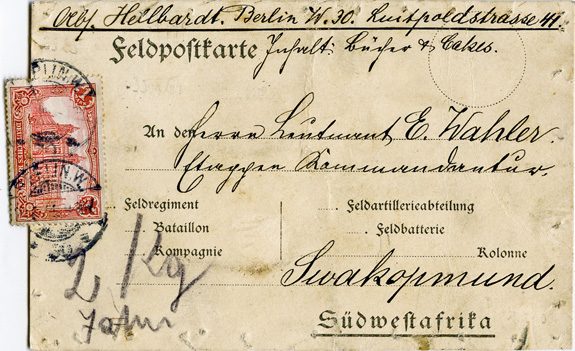 Abs. Hellbardt. Berlin W. 30. Luitpoldstrasse 41
Feldpostkarte Inhalt: Bücher & Cakes.
An den Herrn Leutnant E. Wahler.
Etappen Kommandantur.
Feldregiment Feldartillerieabteilung
Bataillon Feldbatterie
Kompagnie Kolonne
2 Kg
Swakopmund.
Südwestafrika